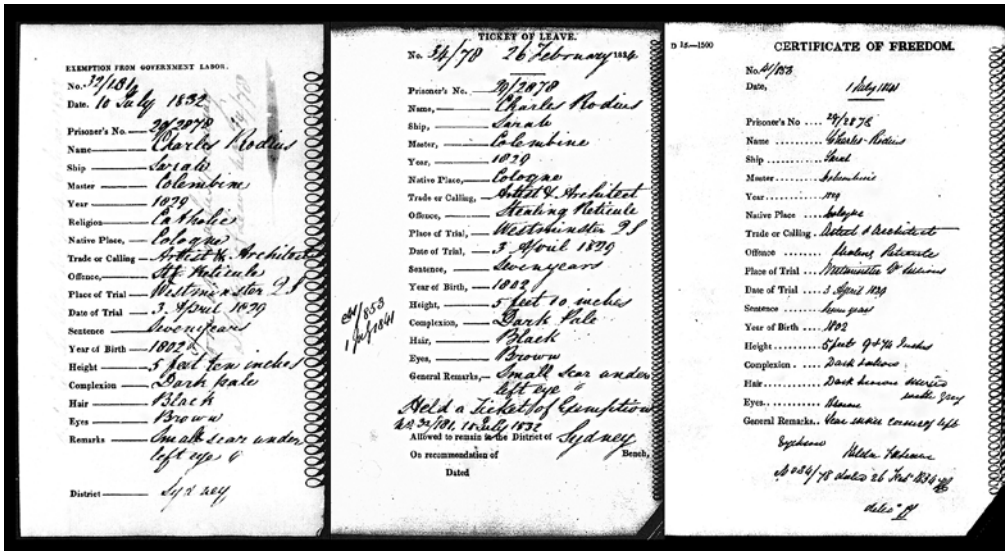 EXEMPTION FROM GOVERNMENT LABOR.
No. 32/181
Date. 10 July 1832
Prisoner's No. 29/2878
Name Charles Rodius
Ship Sarah
Master Columbine
Year 1829
Religion Catholic
Native Place, Cologne
Trade or Calling Artist & Architect
Offence, Stg Reticule
Place of Trial Westminster QS
Date of Trial 3 April 1829
Sentence Seven years
Year of Birth 1802
Height 5 feet ten inches
Complexion Dark pale
Hair Black
Eyes Brown
Remarks Small scar under
left eye
District Sydney
TICKET OF LEAVE.
No. 34/78 26 February 1834
Prisoner's No. 29/2878
Name, Charles Rodius
Ship, Sarah
Master, Columbine
Year, 1829
Native Place, Cologne
Trade or Calling, Artist & Architect
Offence, Stealing Reticule
Place of Trial, Westminster QS
Date of Trial, 3 April 1829
Sentence, Seven years
Year of Birth, 1802
Height, 5 feet 10 inches
Complexion, Dark Pale
Hair, Black
Eyes, Brown
General Remarks, Small scar under
left eye
Held a Ticket of Exemption
No. 32/181, 10 July 1832
Allowed to remain in the District of Sydney
On recommendation of Bench,
Dated
41/853
1 July 1841
D 15.—1500
CERTIFICATE OF FREEDOM.
No. 41/853
Date, 1 July 1841
Prisoner's No 29/2878
Name Charles Rodius
Ship Sarah
Master Columbine
Year 1829
Native Place Cologne
Trade or Calling Artist & Architect
Offence Stealing Reticule
Place of Trial Westminster Qr Sessions
Date of Trial 3 April 1829
Sentence Seven years
Year of Birth 1802
Height 5 feet 9 & 3/4 Inches
Complexion Dark Sallow
Hair Dark brown mixed
with Gray
Eyes Brown
General Remarks Scar inner corner of left
Eyebrow
No 34/78 dated 26 Feb 1834